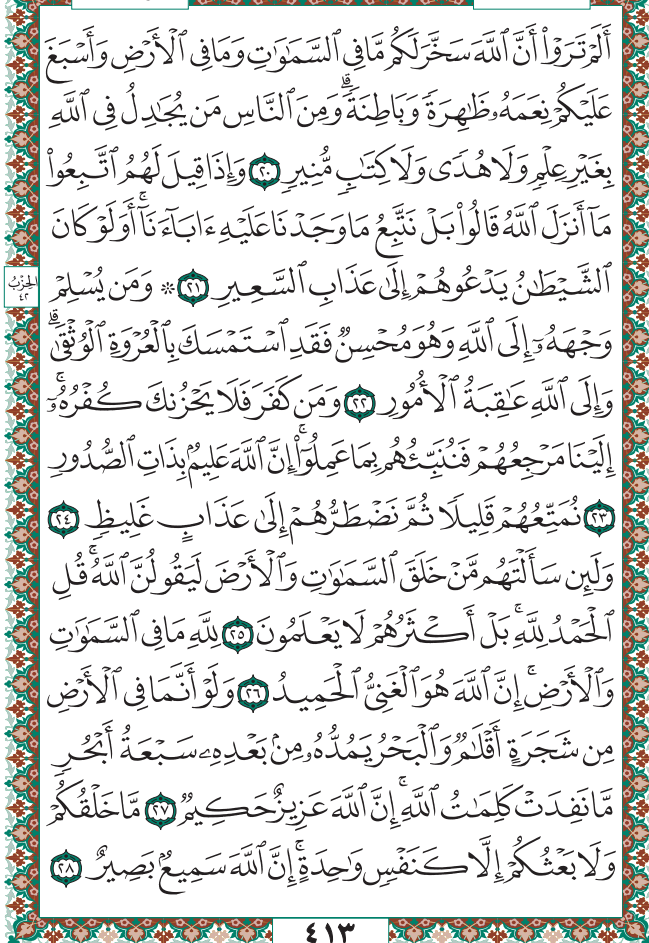 أَلَمۡ تَرَوۡاْ أَنَّ ٱللَّهَ سَخَّرَ لَكُم مَّا فِي ٱلسَّمَٰوَٰتِ وَمَا فِي ٱلۡأَرۡضِ وَأَسۡبَغَ
عَلَيۡكُمۡ نِعَمَهُۥ ظَٰهِرَةٗ وَبَاطِنَةٗۗ وَمِنَ ٱلنَّاسِ مَن يُجَٰدِلُ فِي ٱللَّهِ
بِغَيۡرِ عِلۡمٖ وَلَا هُدٗى وَلَا كِتَٰبٖ مُّنِيرٖ ٢٠ وَإِذَا قِيلَ لَهُمُ ٱتَّبِعُواْ
مَآ أَنزَلَ ٱللَّهُ قَالُواْ بَلۡ نَتَّبِعُ مَا وَجَدۡنَا عَلَيۡهِ ءَابَآءَنَآۚ أَوَلَوۡ كَانَ
ٱلشَّيۡطَٰنُ يَدۡعُوهُمۡ إِلَىٰ عَذَابِ ٱلسَّعِيرِ ٢١ ۞ وَمَن يُسۡلِمۡ
الحِزْبُ ٤٢
وَجۡهَهُۥٓ إِلَى ٱللَّهِ وَهُوَ مُحۡسِنٞ فَقَدِ ٱسۡتَمۡسَكَ بِٱلۡعُرۡوَةِ ٱلۡوُثۡقَىٰۗ
وَإِلَى ٱللَّهِ عَٰقِبَةُ ٱلۡأُمُورِ ٢٢ وَمَن كَفَرَ فَلَا يَحۡزُنكَ كُفۡرُهُۥٓۚ
إِلَيۡنَا مَرۡجِعُهُمۡ فَنُنَبِّئُهُم بِمَا عَمِلُوٓاْۚ إِنَّ ٱللَّهَ عَلِيمُۢ بِذَاتِ ٱلصُّدُورِ
٢٣ نُمَتِّعُهُمۡ قَلِيلٗا ثُمَّ نَضۡطَرُّهُمۡ إِلَىٰ عَذَابٍ غَلِيظٖ ٢٤
وَلَئِن سَأَلۡتَهُم مَّنۡ خَلَقَ ٱلسَّمَٰوَٰتِ وَٱلۡأَرۡضَ لَيَقُولُنَّ ٱللَّهُۚ قُلِ
ٱلۡحَمۡدُ لِلَّهِۚ بَلۡ أَكۡثَرُهُمۡ لَا يَعۡلَمُونَ ٢٥ لِلَّهِ مَا فِي ٱلسَّمَٰوَٰتِ
وَٱلۡأَرۡضِۚ إِنَّ ٱللَّهَ هُوَ ٱلۡغَنِيُّ ٱلۡحَمِيدُ ٢٦ وَلَوۡ أَنَّمَا فِي ٱلۡأَرۡضِ
مِن شَجَرَةٍ أَقۡلَٰمٞ وَٱلۡبَحۡرُ يَمُدُّهُۥ مِنۢ بَعۡدِهِۦ سَبۡعَةُ أَبۡحُرٖ
مَّا نَفِدَتۡ كَلِمَٰتُ ٱللَّهِۚ إِنَّ ٱللَّهَ عَزِيزٌ حَكِيمٞ ٢٧ مَّا خَلۡقُكُمۡ
وَلَا بَعۡثُكُمۡ إِلَّا كَنَفۡسٖ وَٰحِدَةٍۚ إِنَّ ٱللَّهَ سَمِيعُۢ بَصِيرٌ ٢٨
٤١٣